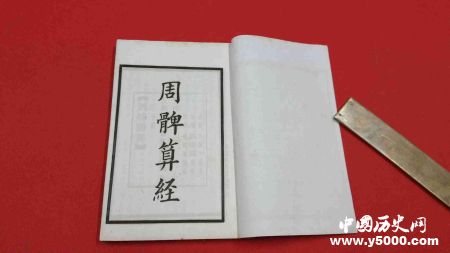 周髀算经
中国历史网
www.y5000.com